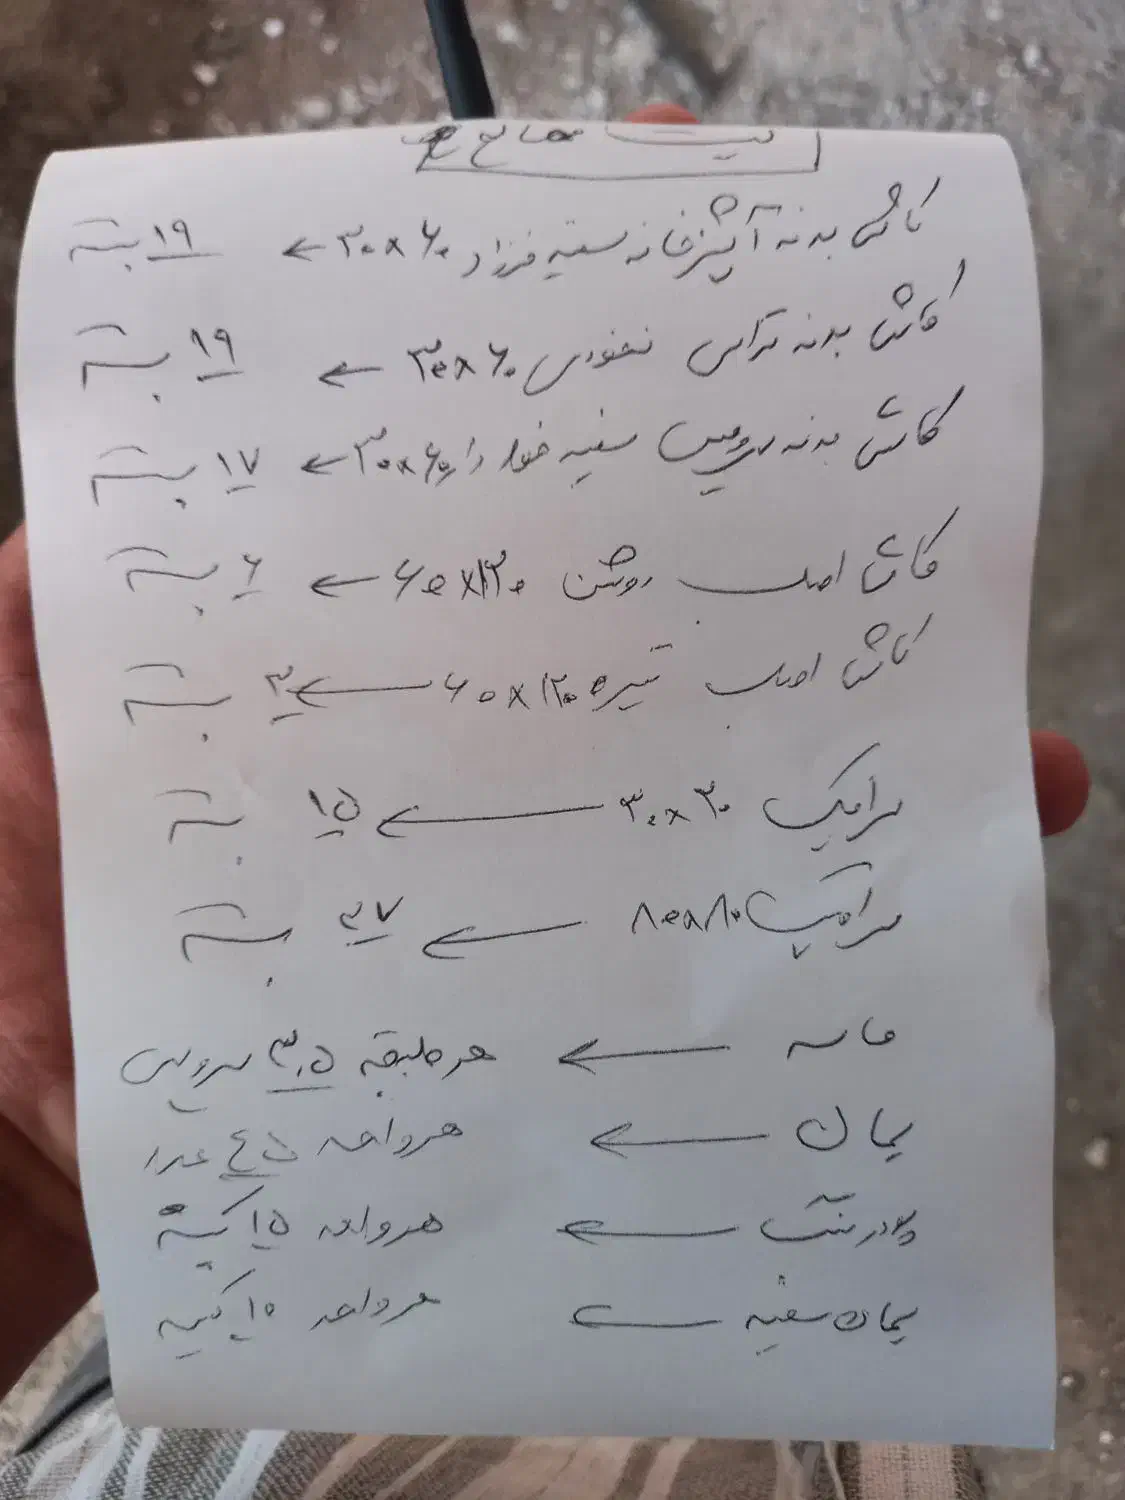 لیست مصالح
کاشی بدنه آشپزخانه سفید ۳۰×۶۰ ← ۱۹ بسته
کاشی بدنه تراس نخودی ۳۰×۶۰ ← ۱۹ بسته
کاشی بدنه سرویس سفید ۳۰×۶۰ ← ۱۷ بسته
کاشی اسلب روشن ۶۰×۱۲۰ ← ۶ بسته
کاشی اسلب تیره ۶۰×۱۲۰ ← ۳ بسته
سرامیک ۳۰×۳۰ ← ۱۵ بسته
سرامیک ۸۰×۸۰ ← ۲۷ بسته
ماسه ← هر طبقه ۳.۵ سرویس
سیمان ← هر واحد ۴۵ عدد
پودر سنگ ← هر واحد ۱۵ کیسه
سیمان سفید ← هر واحد ۱۰ کیسه